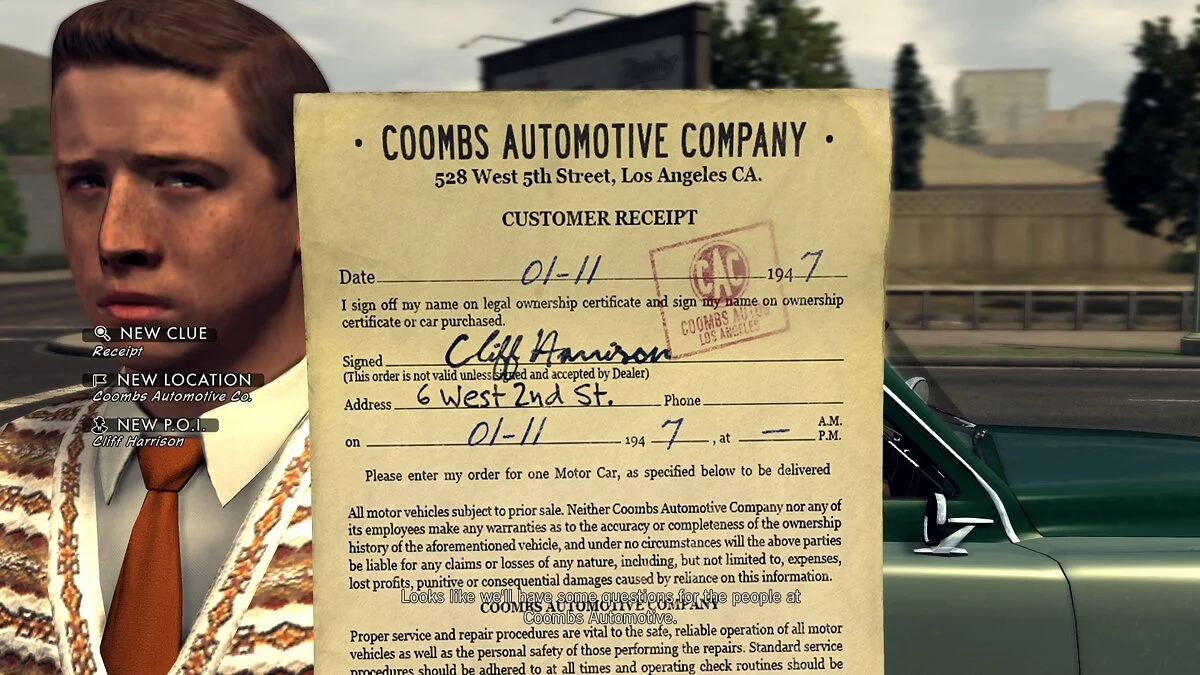 • COOMBS AUTOMOTIVE COMPANY •
528 West 5th Street, Los Angeles CA.
CUSTOMER RECEIPT
Date 01-11 194 7
CAC
COOMBS AUTOS
LOS ANGELES
I sign off my name on legal ownership certificate and sign my name on ownership
certificate or car purchased.
Signed Cliff Harrison
(This order is not valid unless signed and accepted by Dealer)
Address 6 West 2nd St. Phone
on 01-11 194 7, at — A.M.
P.M.
Please enter my order for one Motor Car, as specified below to be delivered
All motor vehicles subject to prior sale. Neither Coombs Automotive Company nor any of
its employees make any warranties as to the accuracy or completeness of the ownership
history of the aforementioned vehicle, and under no circumstances will the above parties
be liable for any claims or losses of any nature, including, but not limited to, expenses,
lost profits, punitive or consequential damages caused by reliance on this information.
COOMBS AUTOMOTIVE COMPANY
Proper service and repair procedures are vital to the safe, reliable operation of all motor
vehicles as well as the personal safety of those performing the repairs. Standard service
procedures should be adhered to at all times and operating check routines should be
NEW CLUE
Receipt
NEW LOCATION
Coombs Automotive Co.
NEW P.O.I.
Cliff Harrison
Looks like we'll have some questions for the people at
Coombs Automotive.